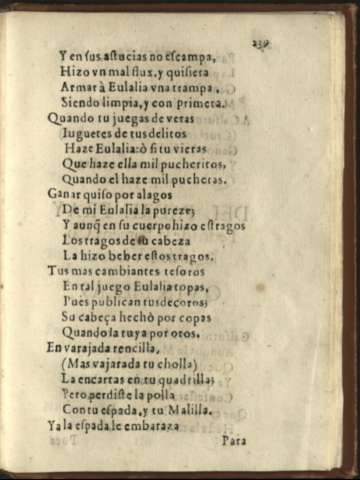 239
Y en sus astucias no escampa,
Hizo vn mal flux, y quisiera
Armar à Eulalia vna trampa,
Siendo limpia, y con primera.
Quando tu juegas de veras
Iuguetes de tus delitos
Haze Eulalia: ò si tu vieras
Que haze ella mil pucheritos,
Quando el haze mil pucheras.
Ganar quiso por alagos
De mi Eulalia la pureze;
Y aunq̃ en su cuerpo hizo estragos
Los tragos de su cabeza
La hizo beber estos tragos.
Tus mas cambiantes tesoros
En tal juego Eulalia topas,
Pues publican tus decoros;
Su cabeça hechò por copas
Quando la tuya por oros.
En varajada rencilla,
(Mas vajarada tu cholla)
La encartas en tu quadrilla;
Pero perdiste la polla
Con tu espada, y tu Malilla.
Ya la espada le embaraza
Para